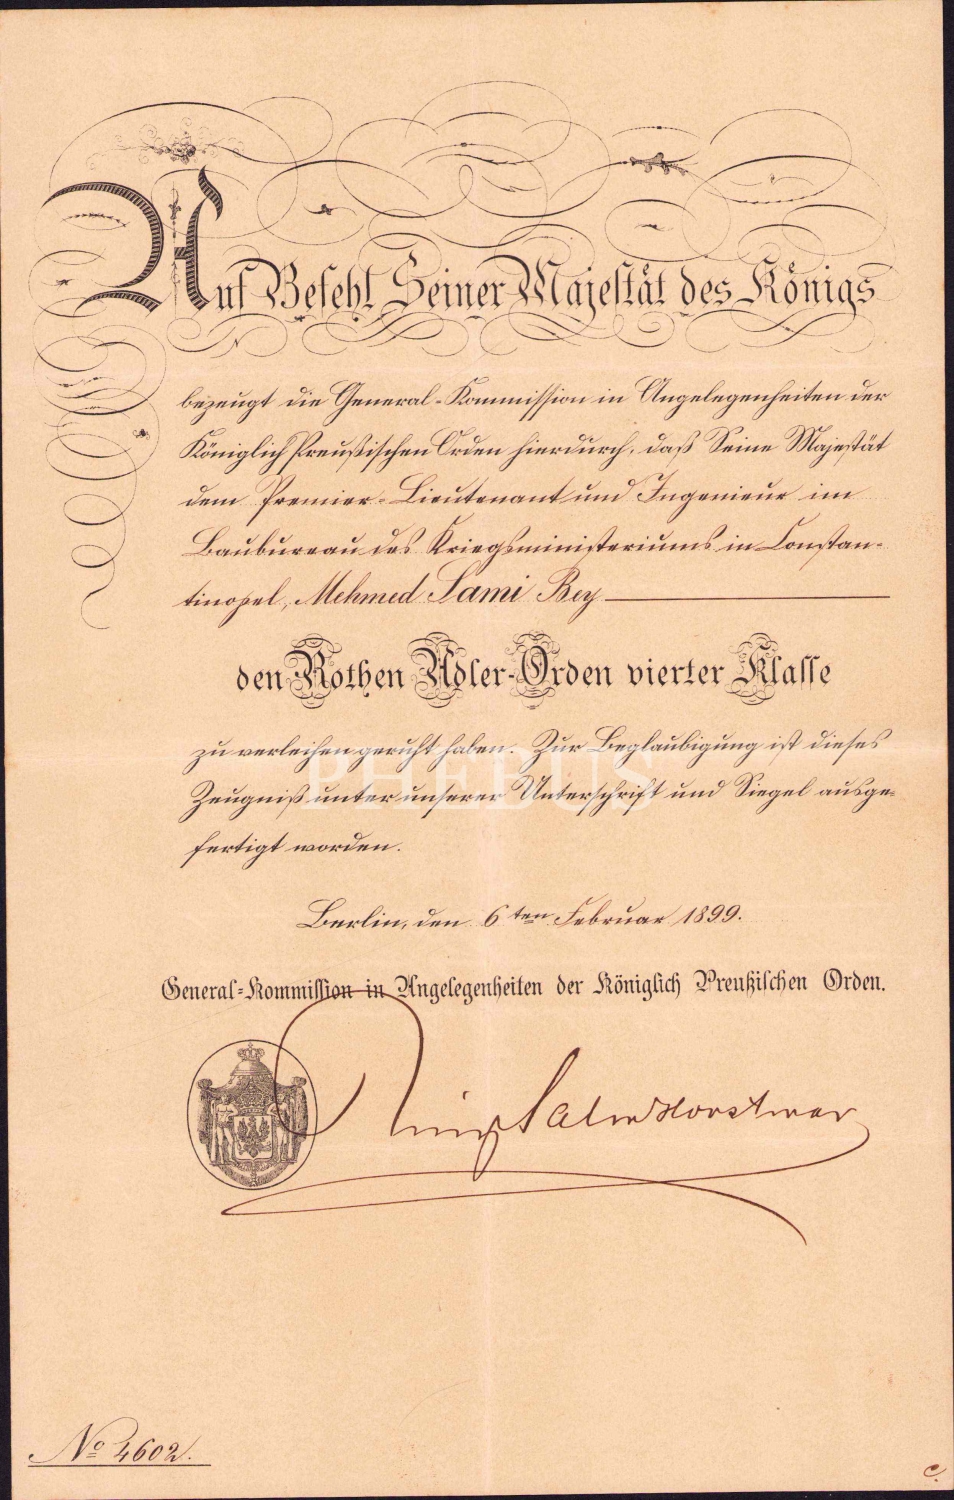 Auf Befehl Seiner Majestät des Königs
bezeugt die General-Kommission in Angelegenheiten der
Königlich Preußischen Orden hierdurch, daß Seine Majestät
dem Premier-Lieutenant und Ingenieur im
Baubureau des Kriegsministeriums in Constan-
tinopel, Mehmed Sami Bey
den Rothen Adler-Orden vierter Klasse
zu verleihen geruht haben. Zur Beglaubigung ist dieses
Zeugniß unter unserer Unterschrift und Siegel ausge-
fertigt worden.
Berlin, den 6ten Februar 1899.
General-Kommission in Angelegenheiten der Königlich Preußischen Orden.
Salm Horstmar
No 4602.
C.
PHEBUS